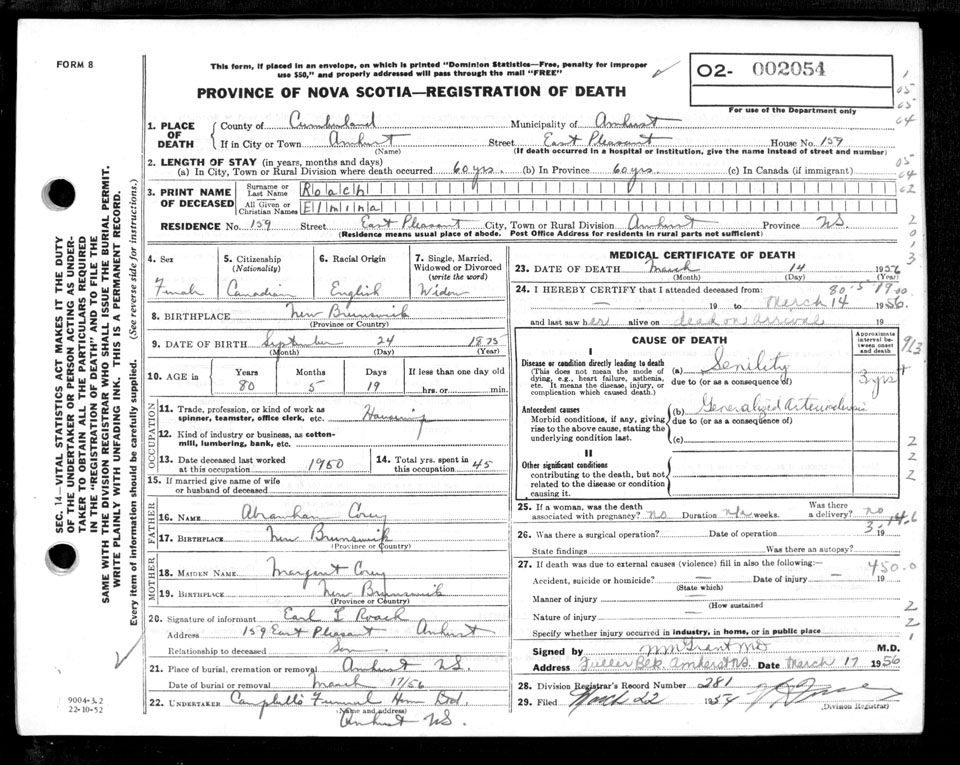 FORM 8
This form, if placed in an envelope, on which is printed "Dominion Statistics—Free, penalty for improper
use $50," and properly addressed will pass through the mail "FREE"
O2- 002054
For use of the Department only
PROVINCE OF NOVA SCOTIA—REGISTRATION OF DEATH
1. PLACE OF DEATH County of Cumberland Municipality of Amherst
If in City or Town Amherst Street East Pleasant House No. 159
(Name) (If death occurred in a hospital or institution, give the name instead of street and number)
2. LENGTH OF STAY (in years, months and days)
(a) In City, Town or Rural Division where death occurred 60 yrs. (b) In Province 60 yrs. (c) In Canada (if immigrant)
3. PRINT NAME OF DECEASED Surname or Last Name Roach
All Given or Christian Names Elmina
RESIDENCE No. 159 Street East Pleasant City, Town or Rural Division Amherst Province NS
(Residence means usual place of abode. Post Office Address for residents in rural parts not sufficient)
4. Sex Female
5. Citizenship (Nationality) Canadian
6. Racial Origin English
7. Single, Married, Widowed or Divorced (write the word) Widow
8. BIRTHPLACE New Brunswick
(Province or Country)
9. DATE OF BIRTH September 24 1875
(Month) (Day) (Year)
10. AGE in Years Months Days If less than one day old
80 5 19 hrs. or min.
OCCUPATION
11. Trade, profession, or kind of work as
spinner, teamster, office clerk, etc.
12. Kind of industry or business, as cotton-
mill, lumbering, bank, etc.
13. Date deceased last worked at this occupation 1950
14. Total yrs. spent in this occupation 45
15. If married give name of wife
or husband of deceased
FATHER
16. NAME Abraham Corey
17. BIRTHPLACE New Brunswick
(Province or Country)
MOTHER
18. MAIDEN NAME Margaret Corey
19. BIRTHPLACE New Brunswick
(Province or Country)
20. Signature of informant Earl L Roach
Address 159 East Pleasant Amherst
Relationship to deceased Son
21. Place of burial, cremation or removal Amherst NS.
Date of burial or removal March 17/56
22. UNDERTAKER Campbell's Funeral Home Ltd.
(Name and address)
Amherst NS.
MEDICAL CERTIFICATE OF DEATH
23. DATE OF DEATH March 14 1956
(Month) (Day) (Year)
24. I HEREBY CERTIFY that I attended deceased from:
— 19 to March 14 1956.
and last saw her alive on dead on arrival 19
CAUSE OF DEATH
Approximate interval between onset and death
I
Disease or condition directly leading to death
(This does not mean the mode of
dying, e.g., heart failure, asthenia,
etc. It means the disease, injury, or
complication which caused death.)
(a) Senility 3 yrs +
due to (or as a consequence of)
Antecedent causes
Morbid conditions, if any, giving
rise to the above cause, stating the
underlying condition last.
(b) Generalized Arteriosclerosis
due to (or as a consequence of)
(c)
II
Other significant conditions
contributing to the death, but not
related to the disease or condition
causing it.
25. If a woman, was the death
associated with pregnancy? no Duration n/a weeks. Was there a delivery? no
26. Was there a surgical operation? Date of operation 19
State findings Was there an autopsy?
27. If death was due to external causes (violence) fill in also the following:—
Accident, suicide or homicide? — Date of injury — 19
(State which)
Manner of injury —
(How sustained)
Nature of injury —
Specify whether injury occurred in industry, in home, or in public place
Signed by M.D.
Address Fuller Bldg. Amherst NS. Date March 17 1956
28. Division Registrar's Record Number 281
29. Filed March 22
(Division Registrar)
SEC. 14—VITAL STATISTICS ACT MAKES IT THE DUTY
OF THE UNDERTAKER OR PERSON ACTING AS UNDER-
TAKER TO OBTAIN ALL THE PARTICULARS REQUIRED
IN THE "REGISTRATION OF DEATH" AND TO FILE THE
SAME WITH THE DIVISION REGISTRAR WHO SHALL ISSUE THE BURIAL PERMIT.
WRITE PLAINLY WITH UNFADING INK. THIS IS A PERMANENT RECORD.
Every item of information should be carefully supplied. (See reverse side for instructions.)
9004-3.2
22-10-52